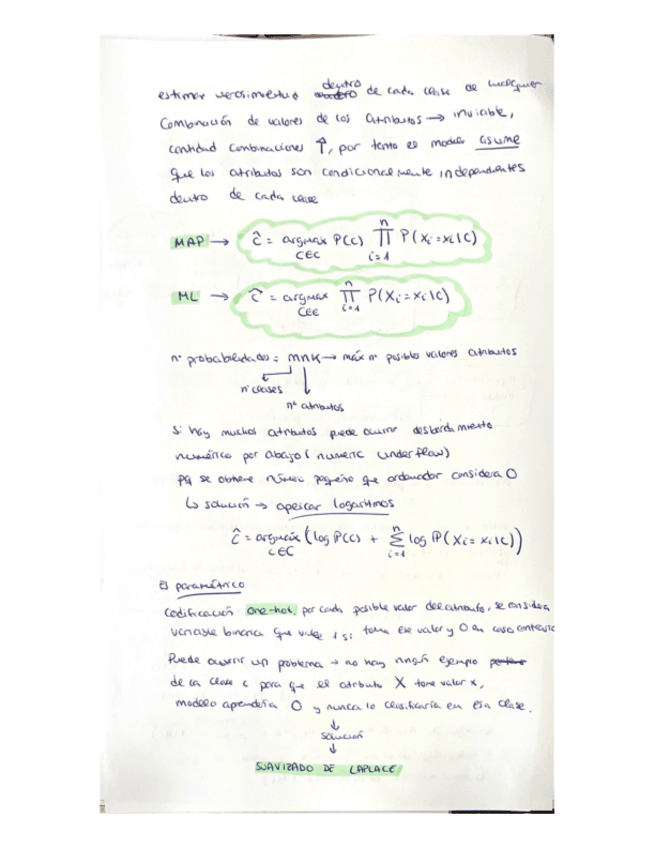 estimar verosimilitud dentro de cada clase de cualquier
combinación de valores de los atributos → inviable,
cantidad combinaciones ↑, por tanto el modelo asume
que los atributos son condicionalmente independientes
dentro de cada clase
MAP → ĉ = argmax P(c) ∏ P(Xi = xi | c)
c∈C i=1 n
ML → ĉ = argmax ∏ P(Xi = xi | c)
c∈C i=1 n
nº probabilidades = mnk → máx nº posibles valores atributos
nº clases
nº atributos
Si hay muchos atributos puede ocurrir desbordamiento
numérico por abajo (numeric underflow)
pq se obtiene número pequeño que ordenador considera 0
↳ solución → aplicar logaritmos
ĉ = argmax (log P(c) + ∑ log P(Xi = xi | c))
c∈C i=1 n
Es paramétrico
Codificación one-hot, por cada posible valor del atributo, se considera
variable binaria que vale 1 si toma ese valor y 0 en caso contrario
Puede ocurrir un problema → no hay ningún ejemplo
de la clase c para que el atributo X tome valor x,
modelo aprendería 0 y nunca lo clasificaría en esa clase.
↓
solución
↓
SUAVIZADO DE LAPLACE